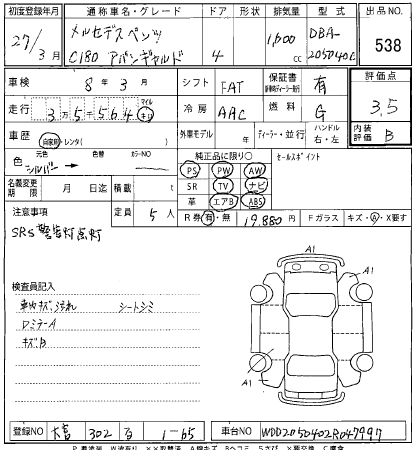 初度登録年月 通称車名・グレード ドア 形状 排気量 型式 出品NO.
27/3月 メルセデスベンツ C180 アバンギャルド 4 1,600cc DBA-205040C 538
車検 8年3月 シフト FAT 保証書 有 評価点
走行 35564 マイル キロ 冷房 AAC 燃料 G 3.5
車歴 自家用・レンタ( ) 外車モデル 年 ディーラー・並行 ハンドル 右・左 内装評価 B
色 元色 シルバー 色替 カラーNO 純正品に限り○ セールスポイント
PS PW AW
名義変更期限 月 日迄 積載 t SR TV ナビ
定員 5人 革 エアB ABS
注意事項 R券 有・無 19,880円 Fガラス キズ・A・X要す
SRS警告灯点灯
A1
A1
検査員記入
車内キズ、汚れ シートシミ
ロミラーA
キズB
A1
登録NO 302 1-65 車台NO WDD2050402R047997